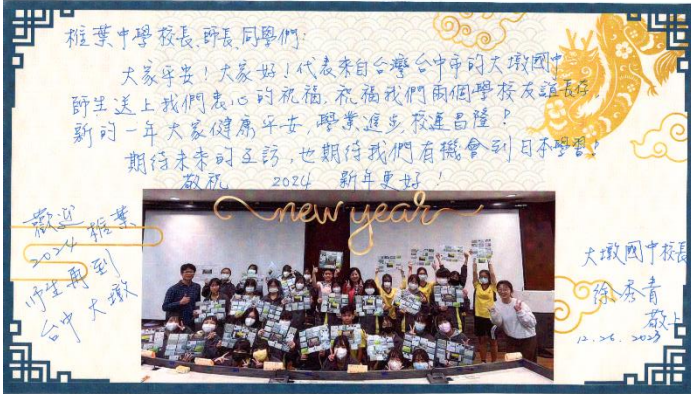 椎葉中學校長、師長、同學們:
大家平安!大家好!代表來自台灣台中市的大墩國中
師生送上我們衷心的祝福,祝福我們兩個學校友誼長存,
新的一年大家健康平安,學業進步,校運昌隆!
期待未來的互訪,也期待我們有機會到日本學習!
敬祝 2024 新年更好!
new year
歡迎椎葉
2024
師生再到
台中大墩
大墩國中校長
徐秀青
敬上
12.26.2023